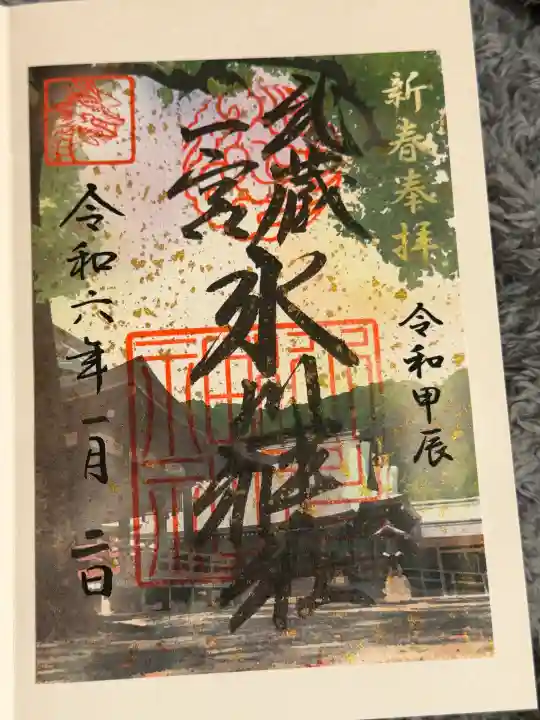 新春奉拝
令和甲辰
武蔵
一宮
氷川神社
令和六年一月二日